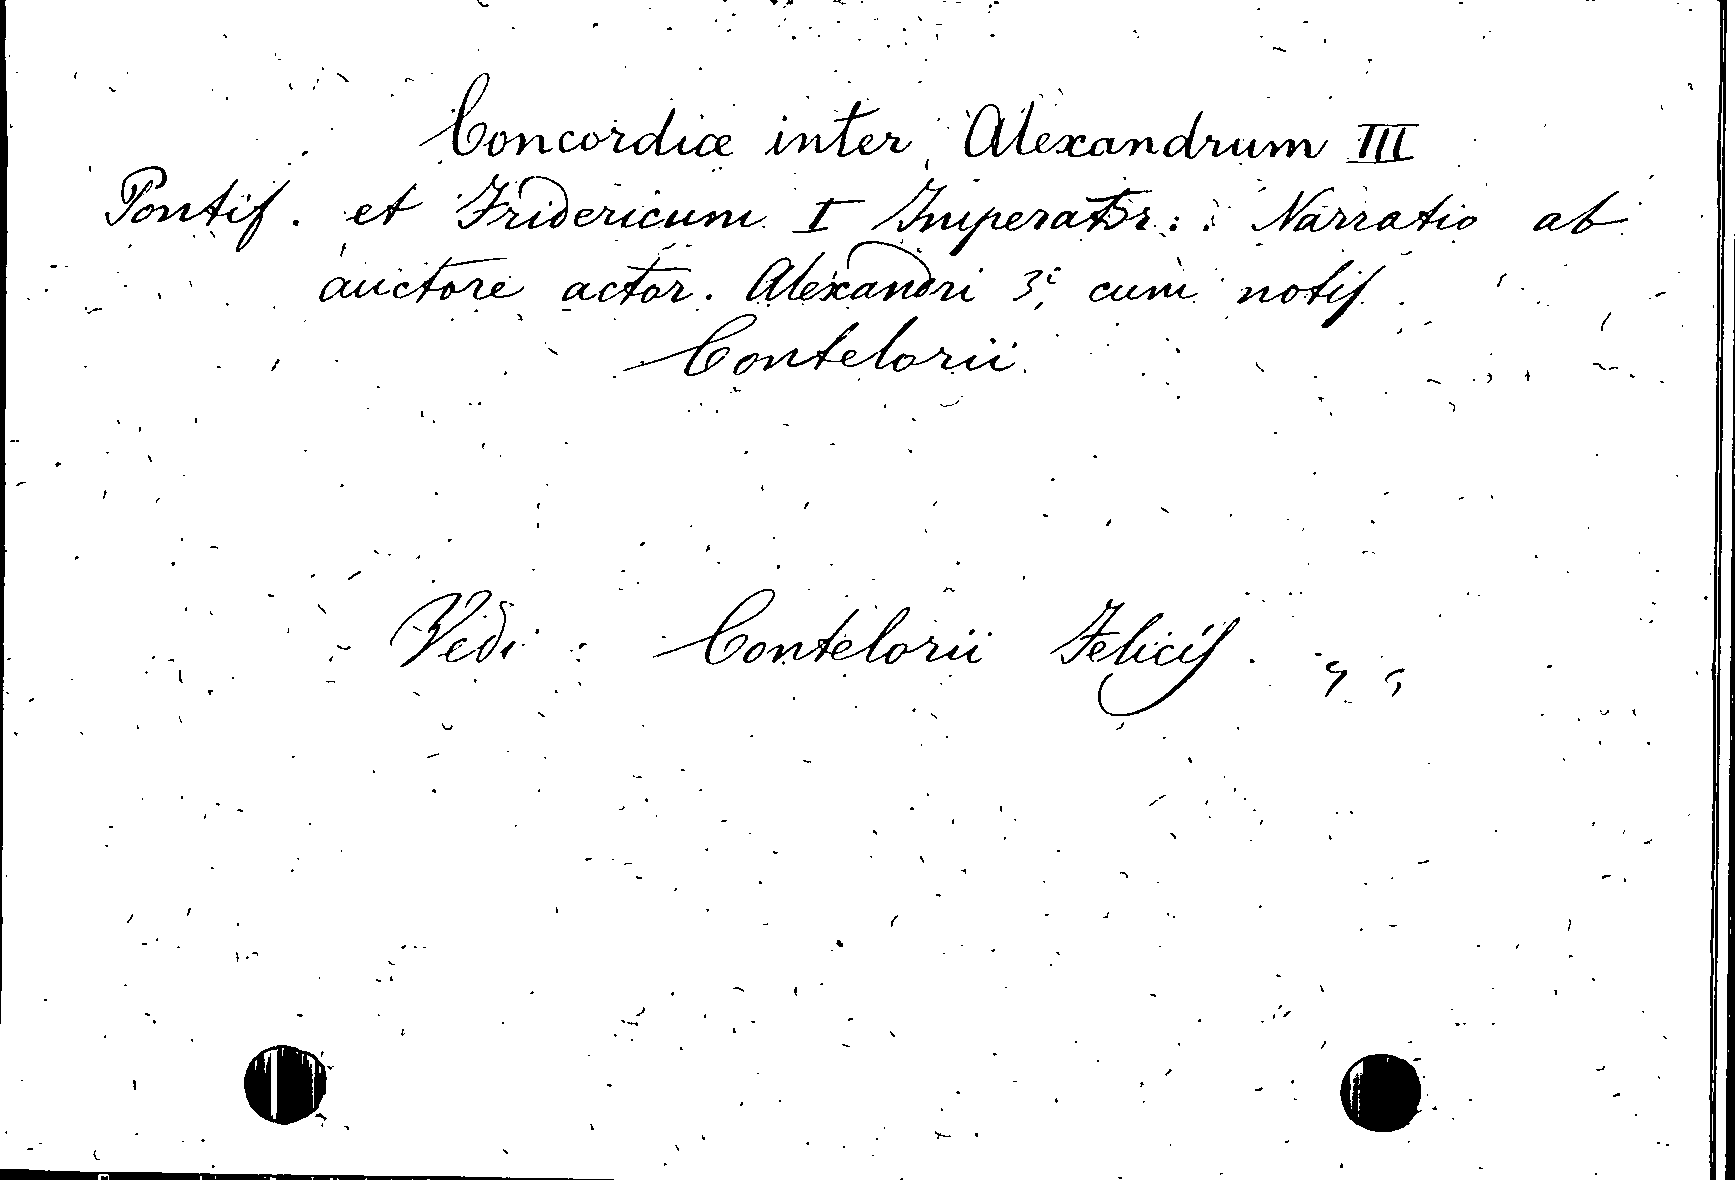 Concordiæ inter Alexandrum III
Pontif. et Fridericum I Imperator: : Narratio ab
auctore actor. Alexandri 3i cum notis
Contelorii
Vedi : Contelorii Felicis. „